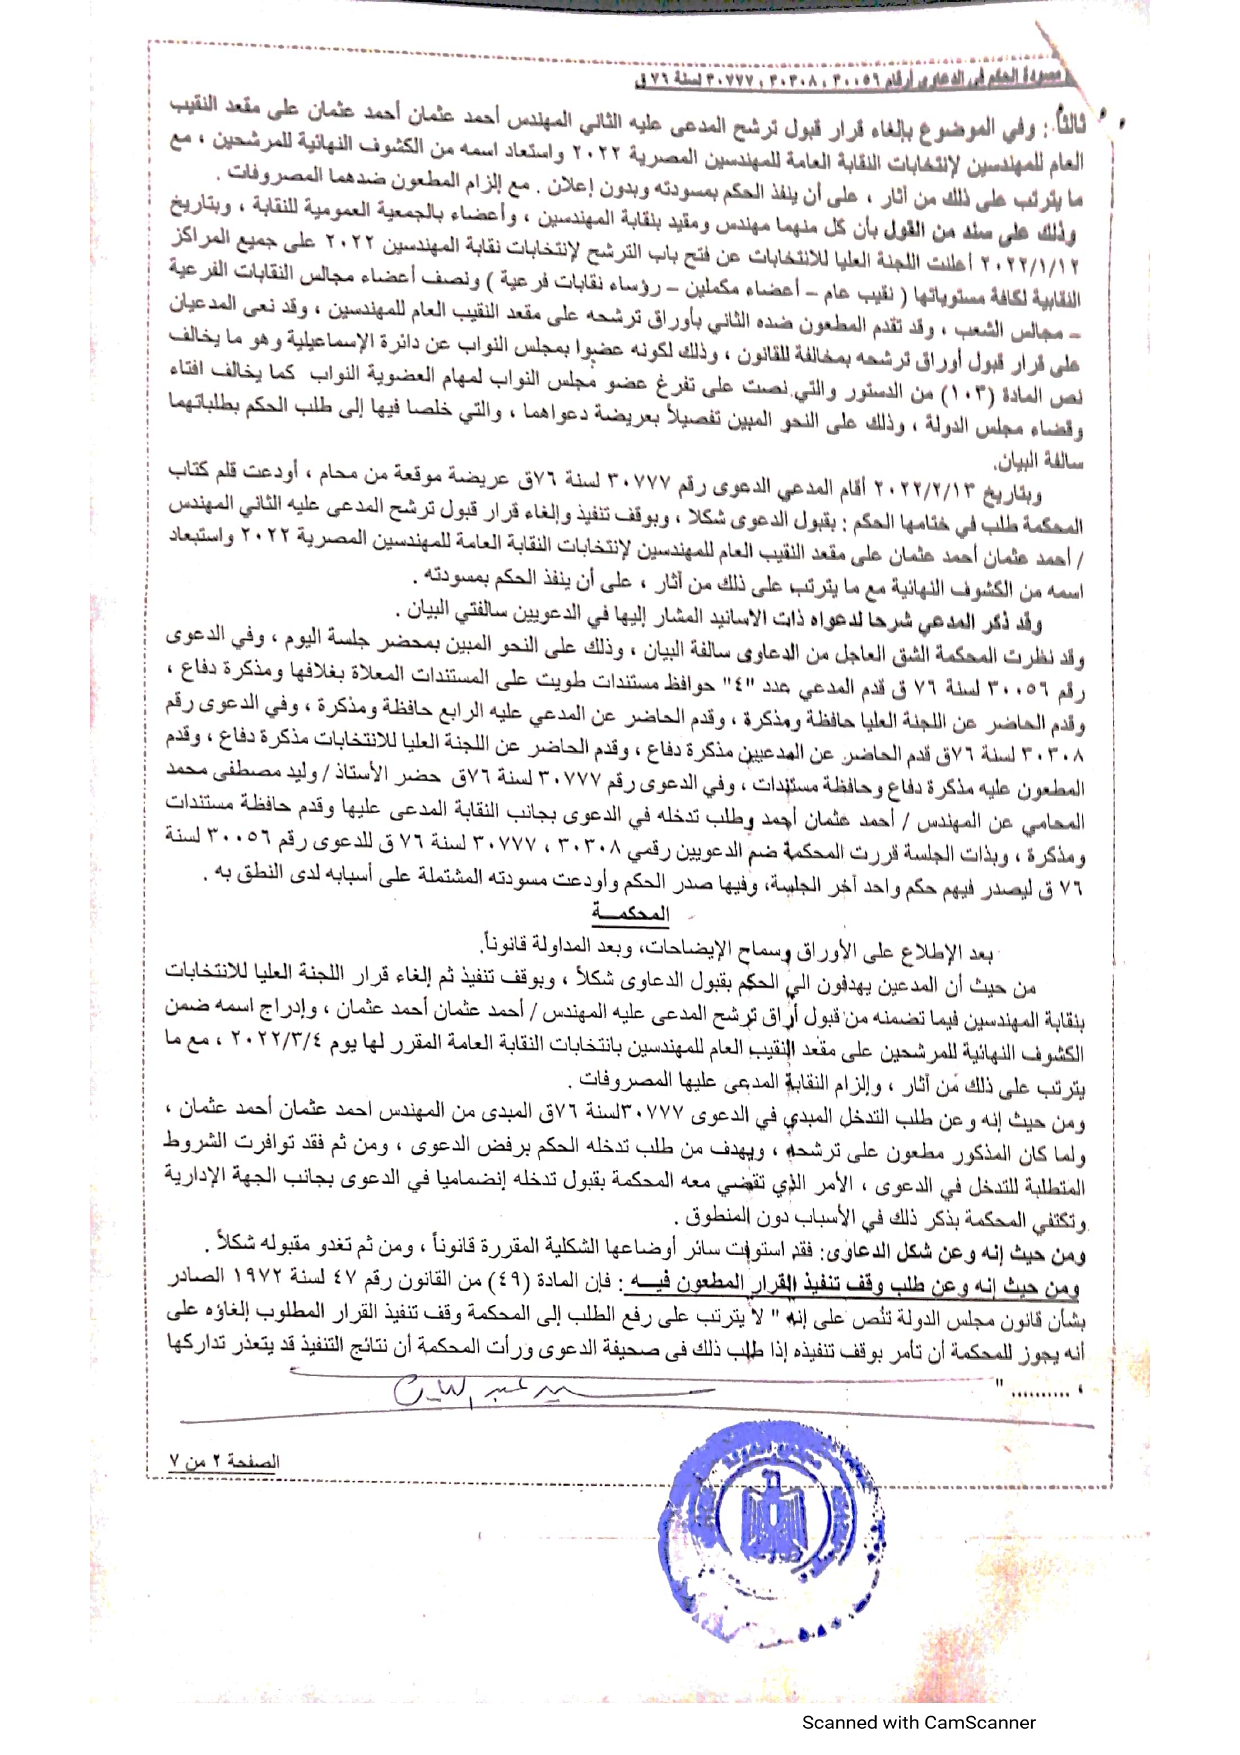 مسودة الحكم في الدعاوى أرقام ٣٠٠٥٦ ، ٣٠٣٠٨ ، ٣٠٧٧٧ لسنة ٧٦ ق
ثالثاً : وفي الموضوع بإلغاء قرار قبول ترشح المدعى عليه الثاني المهندس أحمد عثمان أحمد عثمان على مقعد النقيب
العام للمهندسين لإنتخابات النقابة العامة للمهندسين المصرية ٢٠٢٢ واستعاد اسمه من الكشوف النهائية للمرشحين ، مع
ما يترتب على ذلك من أثار ، على أن ينفذ الحكم بمسودته وبدون إعلان . مع إلزام المطعون ضدهما المصروفات .
وذلك على سند من القول بأن كل منهما مهندس ومقيد بنقابة المهندسين ، وأعضاء بالجمعية العمومية للنقابة ، وبتاريخ
٢٠٢٢/١/١٢ أعلنت اللجنة العليا للانتخابات عن فتح باب الترشح لإنتخابات نقابة المهندسين ٢٠٢٢ على جميع المراكز
النقابية لكافة مستوياتها ( نقيب عام – أعضاء مكملين – رؤساء نقابات فرعية ) ونصف أعضاء مجالس النقابات الفرعية
– مجالس الشعب ، وقد تقدم المطعون ضده الثاني بأوراق ترشحه على مقعد النقيب العام للمهندسين ، وقد نعى المدعيان
على قرار قبول أوراق ترشحه بمخالفة للقانون ، وذلك لكونه عضوا بمجلس النواب عن دائرة الإسماعيلية وهو ما يخالف
نص المادة (١٠٣) من الدستور والتي نصت على تفرغ عضو مجلس النواب لمهام العضوية النواب كما يخالف افتاء
وقضاء مجلس الدولة ، وذلك على النحو المبين تفصيلاً بعريضة دعواهما ، والتي خلصا فيها إلى طلب الحكم بطلباتهما
سالفة البيان.
وبتاريخ ٢٠٢٢/٢/١٣ أقام المدعي الدعوى رقم ٣٠٧٧٧ لسنة ٧٦ق عريضة موقعة من محام ، أودعت قلم كتاب
المحكمة طلب في ختامها الحكم : بقبول الدعوى شكلا ، وبوقف تنفيذ وإلغاء قرار قبول ترشح المدعى عليه الثاني المهندس
/ أحمد عثمان أحمد عثمان على مقعد النقيب العام للمهندسين لإنتخابات النقابة العامة للمهندسين المصرية ٢٠٢٢ واستبعاد
اسمه من الكشوف النهائية مع ما يترتب على ذلك من آثار ، على أن ينفذ الحكم بمسودته .
وقد ذكر المدعي شرحا لدعواه ذات الاسانيد المشار إليها في الدعويين سالفتي البيان .
وقد نظرت المحكمة الشق العاجل من الدعاوى سالفة البيان ، وذلك على النحو المبين بمحضر جلسة اليوم ، وفي الدعوى
رقم ٣٠٠٥٦ لسنة ٧٦ ق قدم المدعي عدد "٤" حوافظ مستندات طويت على المستندات المعلاة بغلافها ومذكرة دفاع ،
وقدم الحاضر عن اللجنة العليا حافظة ومذكرة ، وقدم الحاضر عن المدعي عليه الرابع حافظة ومذكرة ، وفي الدعوى رقم
٣٠٣٠٨ لسنة ٧٦ق قدم الحاضر عن المدعيين مذكرة دفاع ، وقدم الحاضر عن اللجنة العليا للانتخابات مذكرة دفاع ، وقدم
المطعون عليه مذكرة دفاع وحافظة مستندات ، وفي الدعوى رقم ٣٠٧٧٧ لسنة ٧٦ق حضر الأستاذ / وليد مصطفى محمد
المحامي عن المهندس / أحمد عثمان أحمد وطلب تدخله في الدعوى بجانب النقابة المدعى عليها وقدم حافظة مستندات
ومذكرة ، وبذات الجلسة قررت المحكمة ضم الدعويين رقمي ٣٠٣٠٨ ، ٣٠٧٧٧ لسنة ٧٦ ق للدعوى رقم ٣٠٠٥٦ لسنة
٧٦ ق ليصدر فيهم حكم واحد آخر الجلسة، وفيها صدر الحكم وأودعت مسودته المشتملة على أسبابه لدى النطق به .
المحكمـــة
بعد الإطلاع على الأوراق وسماح الإيضاحات، وبعد المداولة قانوناً.
من حيث أن المدعين يهدفون الي الحكم بقبول الدعاوى شكلاً ، وبوقف تنفيذ ثم إلغاء قرار اللجنة العليا للانتخابات
بنقابة المهندسين فيما تضمنه من قبول أراق ترشح المدعى عليه المهندس / أحمد عثمان أحمد عثمان ، وإدراج اسمه ضمن
الكشوف النهائية للمرشحين على مقعد النقيب العام للمهندسين بانتخابات النقابة العامة المقرر لها يوم ٢٠٢٢/٣/٤ ، مع ما
يترتب على ذلك من أثار ، وإلزام النقابة المدعى عليها المصروفات .
ومن حيث إنه وعن طلب التدخل المبدي في الدعوى ٣٠٧٧٧لسنة ٧٦ق المبدى من المهندس احمد عثمان أحمد عثمان ،
ولما كان المذكور مطعون على ترشحه ، ويهدف من طلب تدخله الحكم برفض الدعوى ، ومن ثم فقد توافرت الشروط
المتطلبة للتدخل في الدعوى ، الأمر الذي تقضي معه المحكمة بقبول تدخله إنضماميا في الدعوى بجانب الجهة الإدارية
وتكتفي المحكمة بذكر ذلك في الأسباب دون المنطوق .
ومن حيث إنه وعن شكل الدعاوى: فقد استوفت سائر أوضاعها الشكلية المقررة قانوناً ، ومن ثم تغدو مقبوله شكلاً .
ومن حيث إنه وعن طلب وقف تنفيذ القرار المطعون فيـــه : فإن المادة (٤٩) من القانون رقم ٤٧ لسنة ١٩٧٢ الصادر
بشأن قانون مجلس الدولة تنص على إنه " لا يترتب على رفع الطلب إلى المحكمة وقف تنفيذ القرار المطلوب إلغاؤه على
أنه يجوز للمحكمة أن تأمر بوقف تنفيذه إذا طلب ذلك فى صحيفة الدعوى ورأت المحكمة أن نتائج التنفيذ قد يتعذر تداركها
، .......... "
الصفحة ٢ من ٧
Scanned with CamScanner